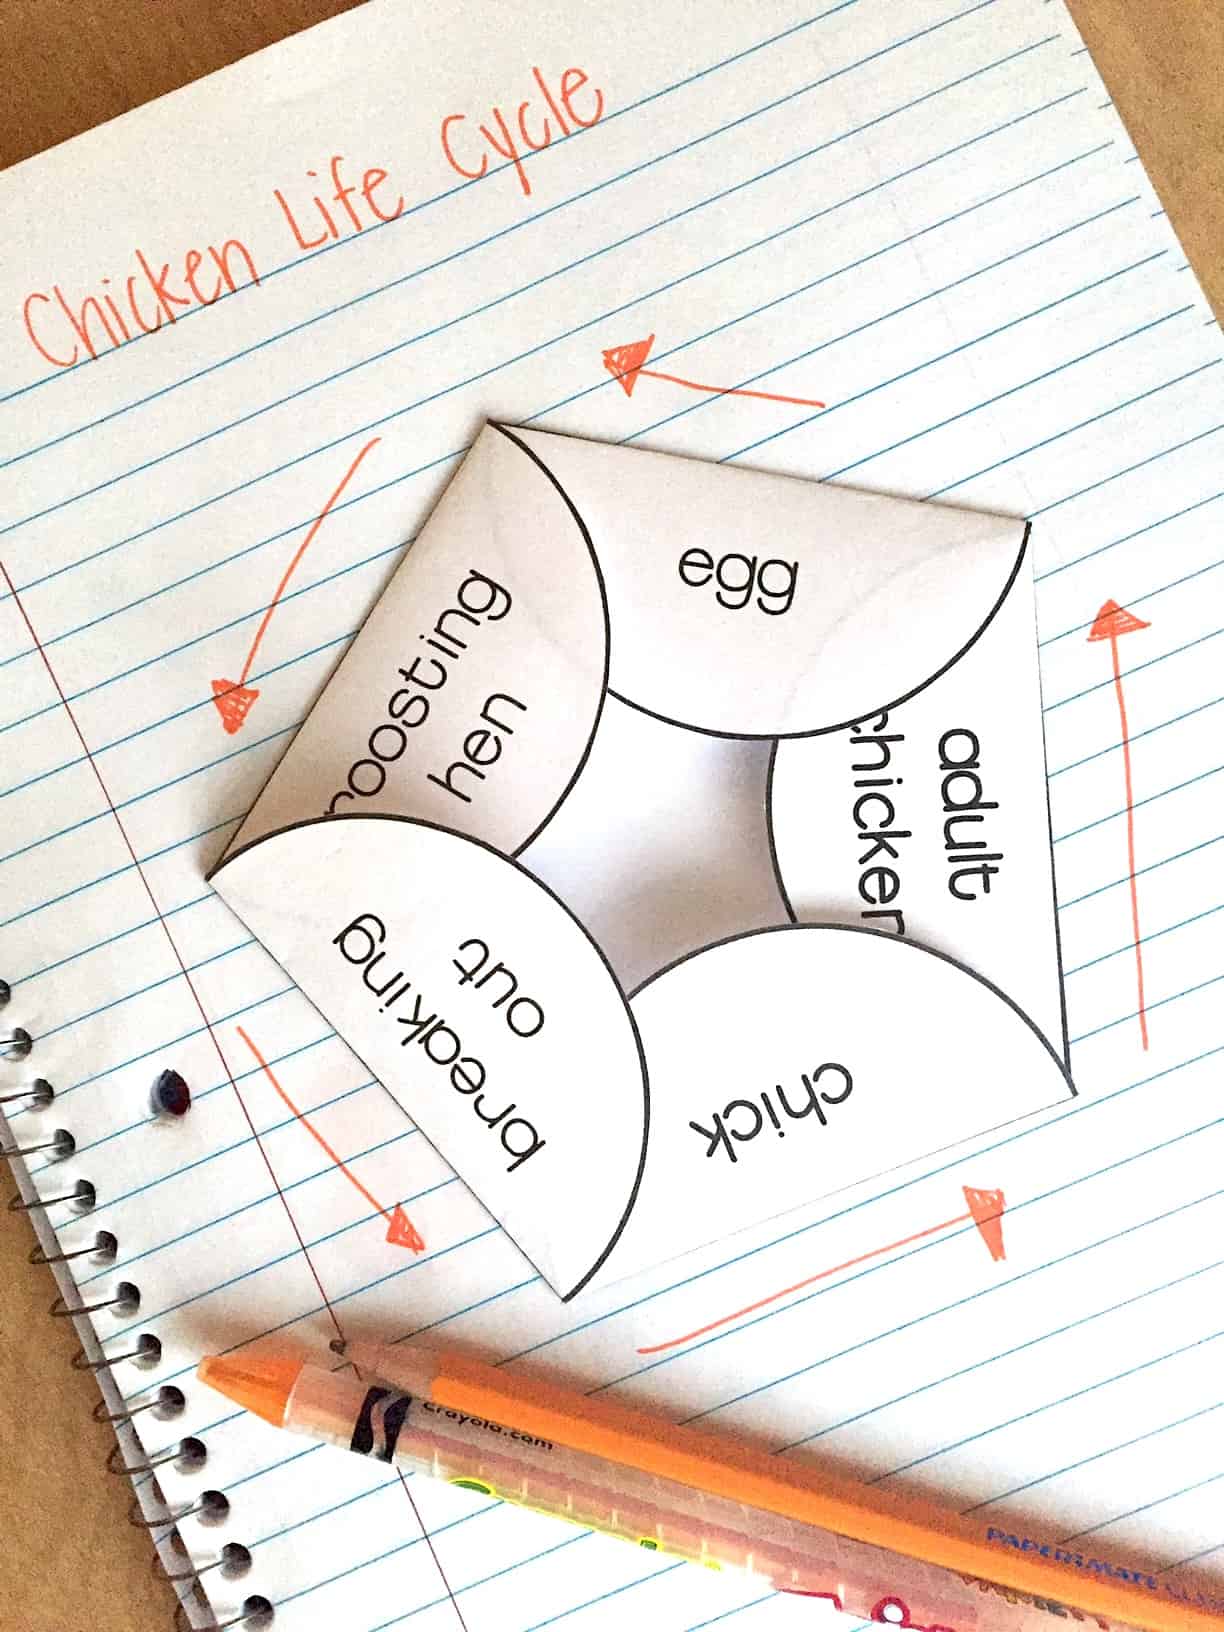 Chicken Life Cycle
egg
roosting
hen
breaking
out
chick
adult
chicken
Crayola.com
PAPERMATE